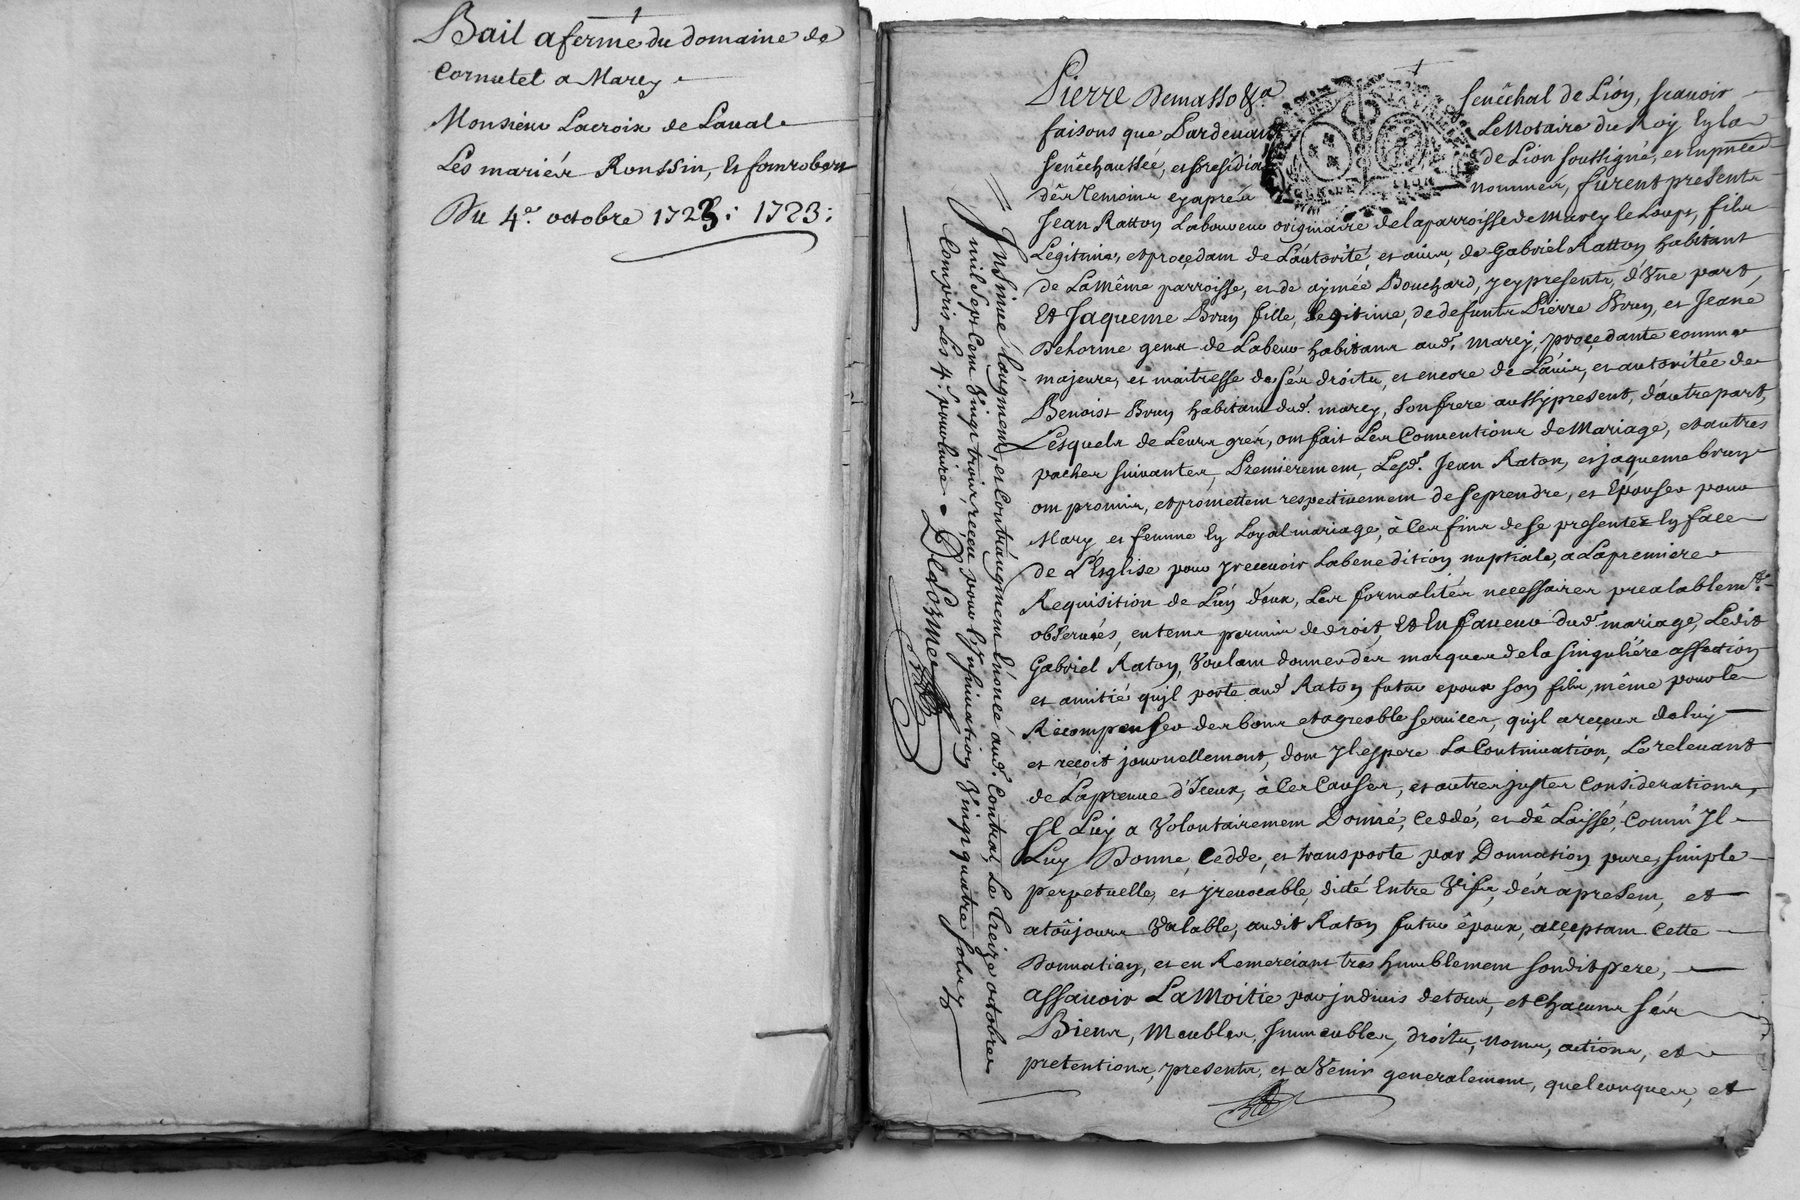 Bail aferme du domaine de
Cornutel a Marcy
Monsieur Lacroix de Laval
Les mariés Ronssin, et fomrobert
Du 4e. octobre 1723: 1723:
Pierre Demasso &a Senêchal de Lion, scavoir
faisons que Pardevant Le Notaire du Roy En la
Senêchaussée, et presidial de Lion soussigné, et En presce
des temoins cy aprés nommés, furent presents
Jean Ratton Laboureur originaire de la parroisse de Marcy le Loup, fils
Legitime, et proçedant de L'autorité, et avis, de Gabriel Ratton habitant
de La même parroisse, et de aymée Bouchard, ycy presents, d'Vne part,
Et Jaqueme Brun fille, legitime, de defunts Pierre Brun, et Jeane
Dehorme gens de Labeur habitans aud. marcy, proçedante comme
majeure, et maitresse de sés droits, et encore de L'avis, et autoritée de
Benoist Brun habitant dud. marcy, son frere aussy present, d'autre part,
Lesquels de Leurs grés, ont fait Les Conventions de Mariage, et autres
pactes suivantes, Premierement, Lesd. Jean Raton, et jaqueme brun
ont promis, et promettent respectivement de se prendre, et Epouser pour
Mary et femme En Loyal mariage, à Ces fins de se presenter En face
de L'Esglise pour y recevoir La benedition nuptiale, a La premiere
Requisition de L'un d'eux, Les formalités necessaires prealablemt.
observés, en tems permis de droit, Et En faveur dud. mariage, Ledit
Gabriel Raton, Voulant donner des marques de la singuliére affection
et amitié qu'jl porte aud. Raton futur epoux son fils, même pour le
Recompenser des bons et agreable services, qu'jl a reçeus de luy
et recoit journellement, dont Jl espere La Continuation, Le relevant
de La preuve d'Iceux, à Ces Causes, et autres justes Considerations,
Jl Luy a Volontairement Donné, Ceddé, et dê Laissé, Comm' Jl
Luy Donne, Cedde, et transporte par Donnation pure, simple
perpetuelle, et jrevocable, dité Entre Vifs, dés a present, et
atoûjours Valable, audit Raton futur êpoux, acceptant Cette
Donnation, et en Remerciant tres humblement sondit pere,
assavoir La Moitie par jndivis de tous, et Chacuns sés
Biens, Meubles, Jmmeubles, droits, noms, actions, et
pretentions, presents, et a Venir generalement, quelconques, et
Jnsinué l'augment, et Contraugment Enoncé aud. Contrat, Le treize octobre
mil sept Cent Vingt trois, reçeu pour L'Jnsinuation Vingt quatre sols
Compris Les 4. s. pour livre. Delorme